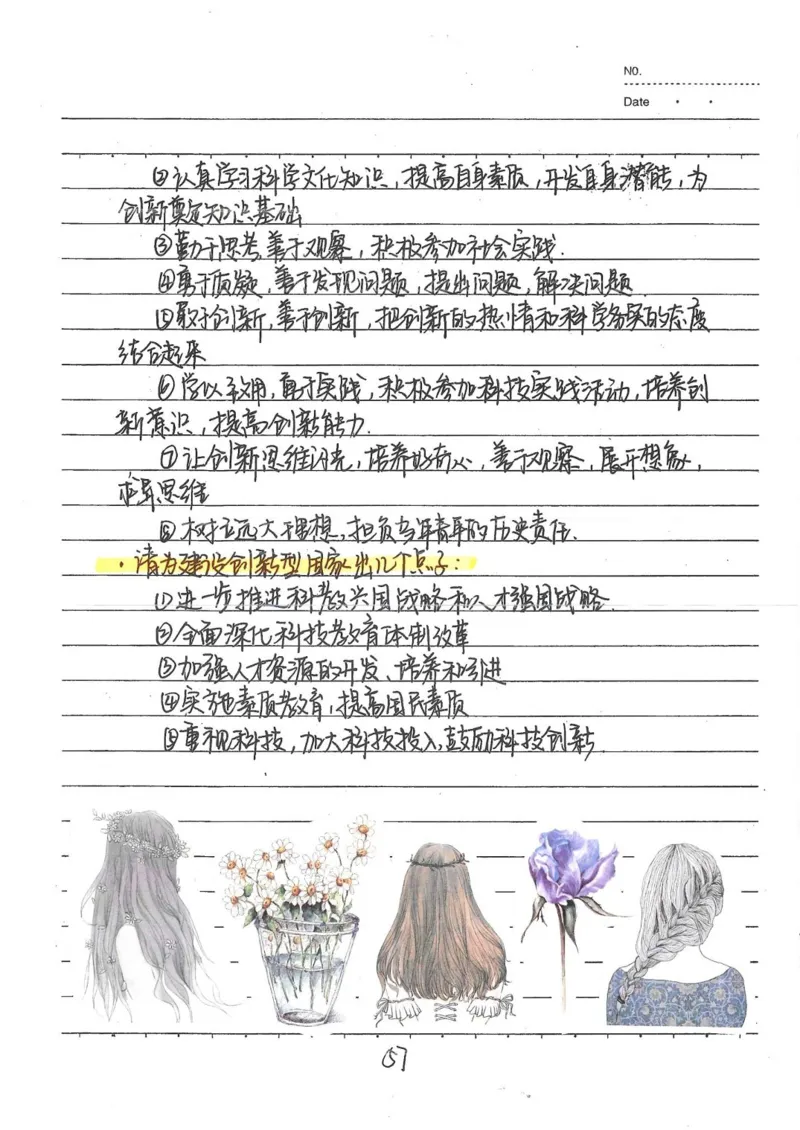 NO.
Date
②认真学习科学文化知识，提高自身素质，开发自身潜能，为
创新奠定知识基础
③勤于思考，善于观察，积极参加社会实践.
④勇于质疑，善于发现问题，提出问题，解决问题.
⑤敢于创新，善于创新，把创新的热情和科学务实的态度
结合起来
⑥学以致用，勇于实践，积极参加科技实践活动，培养创
新意识，提高创新能力.
⑦让创新思维闪光，培养好奇心，善于观察，展开想象，
求异思维
⑧树立远大理想，担负当年青年的历史责任.
·请为建设创新型国家出几个点子：
①进一步推进科教兴国战略和人才强国战略.
②全面深化科技教育体制改革
③加强人才资源的开发、培养和引进
④实施素质教育，提高国民素质
⑤重视科技，加大科技投入，鼓励科技创新.
57